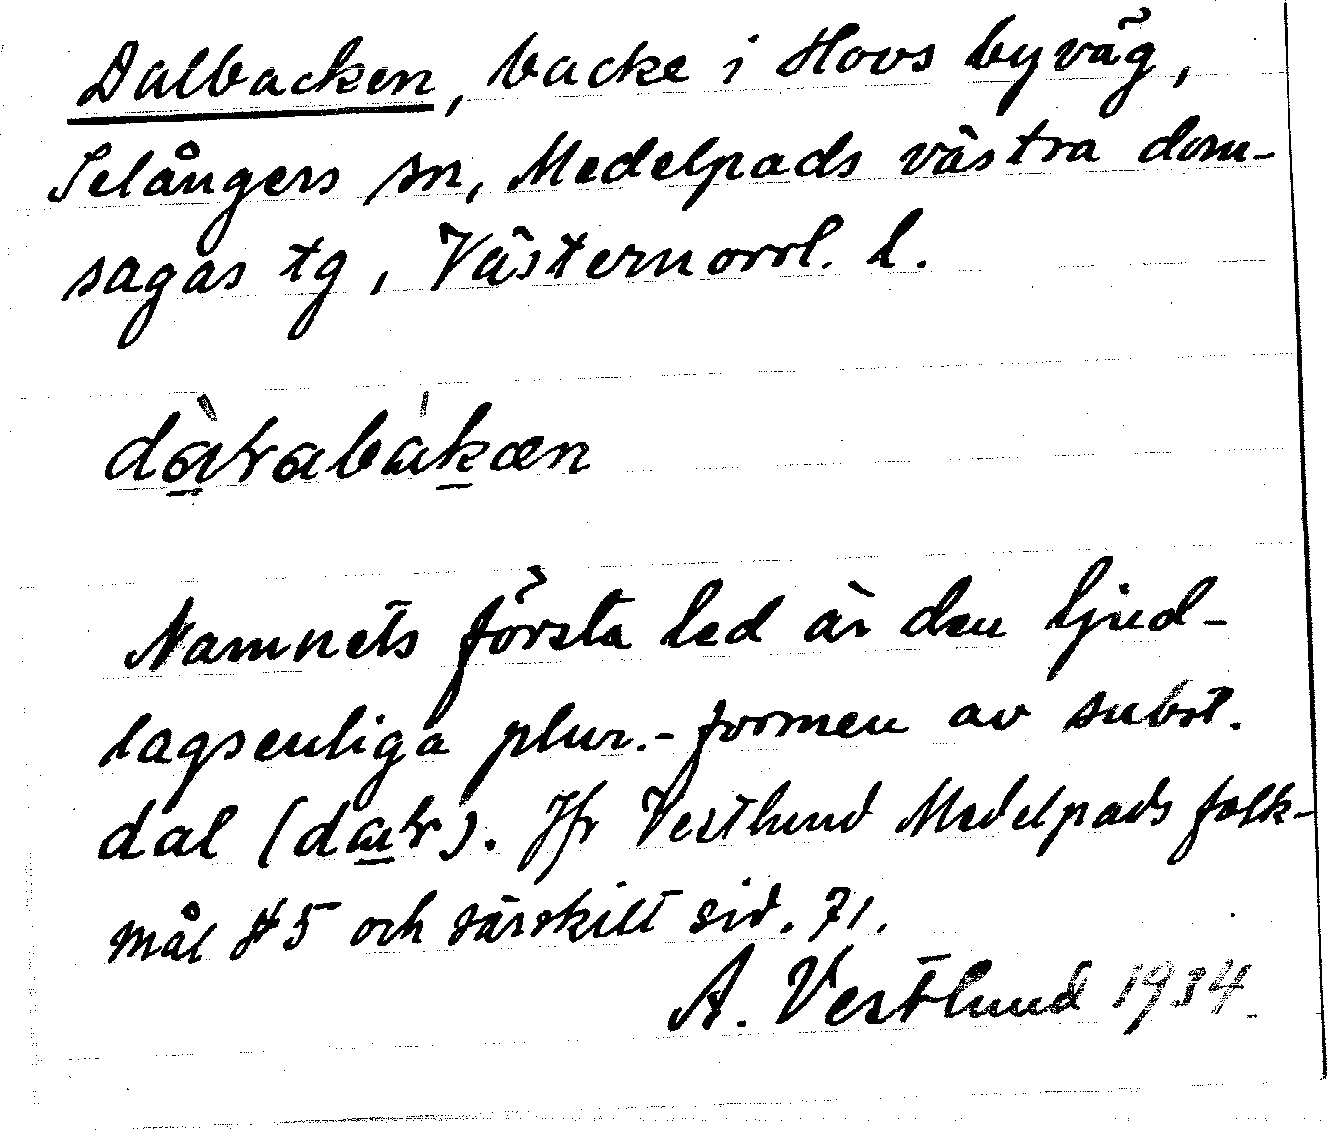 Dalbacken, backe i Hovs byväg,
Selångers sn, Medelpads västra dom-
sagas tg, Västernorrl. l.
Namnets första led är den ljud-
lagsenliga plur.-formen av subst.
dal ( ). Jfr Vestlund Medelpads folk-
mål # 5 och särskilt sid. 71.
A. Vestlund 1934.